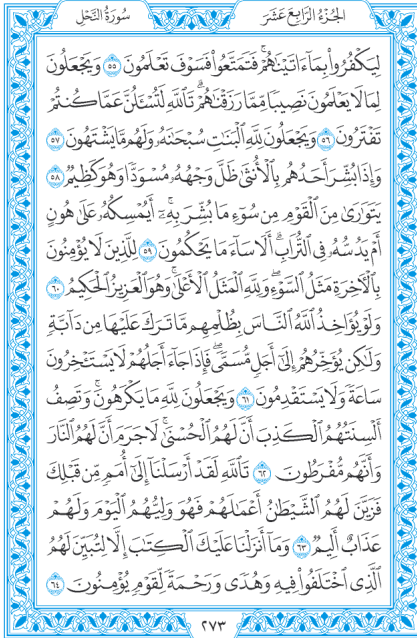 الجُزءُ الرَّابِعَ عَشَرَ
سُورَةُ النَّحْلِ
لِيَكْفُرُوا۟ بِمَآ ءَاتَيْنَٰهُمْ ۚ فَتَمَتَّعُوا۟ فَسَوْفَ تَعْلَمُونَ ٥٥ وَيَجْعَلُونَ
لِمَا لَا يَعْلَمُونَ نَصِيبًا مِّمَّا رَزَقْنَٰهُمْ ۗ تَٱللَّهِ لَتُسْـَٔلُنَّ عَمَّا كُنتُمْ
تَفْتَرُونَ ٥٦ وَيَجْعَلُونَ لِلَّهِ ٱلْبَنَٰتِ سُبْحَٰنَهُۥ وَلَهُم مَّا يَشْتَهُونَ ٥٧
وَإِذَا بُشِّرَ أَحَدُهُم بِٱلْأُنثَىٰ ظَلَّ وَجْهُهُۥ مُسْوَدًّا وَهُوَ كَظِيمٌ ٥٨
يَتَوَٰرَىٰ مِنَ ٱلْقَوْمِ مِن سُوٓءِ مَا بُشِّرَ بِهِۦٓ ۚ أَيُمْسِكُهُۥ عَلَىٰ هُونٍ
أَمْ يَدُسُّهُۥ فِى ٱلتُّرَابِ ۗ أَلَا سَآءَ مَا يَحْكُمُونَ ٥٩ لِلَّذِينَ لَا يُؤْمِنُونَ
بِٱلْءَاخِرَةِ مَثَلُ ٱلسَّوْءِ ۖ وَلِلَّهِ ٱلْمَثَلُ ٱلْأَعْلَىٰ ۚ وَهُوَ ٱلْعَزِيزُ ٱلْحَكِيمُ ٦٠
وَلَوْ يُؤَاخِذُ ٱللَّهُ ٱلنَّاسَ بِظُلْمِهِم مَّا تَرَكَ عَلَيْهَا مِن دَآبَّةٍ
وَلَٰكِن يُؤَخِّرُهُمْ إِلَىٰٓ أَجَلٍ مُّسَمًّى ۖ فَإِذَا جَآءَ أَجَلُهُمْ لَا يَسْتَـْٔخِرُونَ
سَاعَةً ۖ وَلَا يَسْتَقْدِمُونَ ٦١ وَيَجْعَلُونَ لِلَّهِ مَا يَكْرَهُونَ ۚ وَتَصِفُ
أَلْسِنَتُهُمُ ٱلْكَذِبَ أَنَّ لَهُمُ ٱلْحُسْنَىٰ ۖ لَا جَرَمَ أَنَّ لَهُمُ ٱلنَّارَ
وَأَنَّهُم مُّفْرَطُونَ ٦٢ تَٱللَّهِ لَقَدْ أَرْسَلْنَآ إِلَىٰٓ أُمَمٍ مِّن قَبْلِكَ
فَزَيَّنَ لَهُمُ ٱلشَّيْطَٰنُ أَعْمَٰلَهُمْ فَهُوَ وَلِيُّهُمُ ٱلْيَوْمَ وَلَهُمْ
عَذَابٌ أَلِيمٌ ٦٣ وَمَآ أَنزَلْنَا عَلَيْكَ ٱلْكِتَٰبَ إِلَّا لِتُبَيِّنَ لَهُمُ
ٱلَّذِى ٱخْتَلَفُوا۟ فِيهِ ۙ وَهُدًى وَرَحْمَةً لِّقَوْمٍ يُؤْمِنُونَ ٦٤
٢٧٣